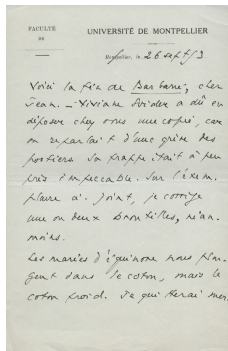 FACULTÉ
DE
UNIVERSITÉ DE MONTPELLIER
Montpellier, le 26 sept 53
Voici la fin de Barbarie, cher
Jean. — Viviane a dû en
déposer chez vous une copie, car
on reparlait d'une grève des
postiers. Sa frappe était à peu
près impeccable. Sur l'exem-
plaire ci-joint, je corrige
une ou deux broutilles, néan-
moins.
Les marées d'équinoxe nous plon-
gent dans le coton, mais le
coton froid. Je quitterai mon